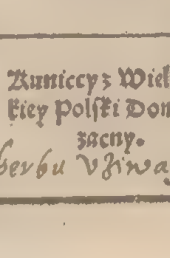 Kuniccy z Wiel
kiey Polſki Dom
zacny.
herbu Vżiwa